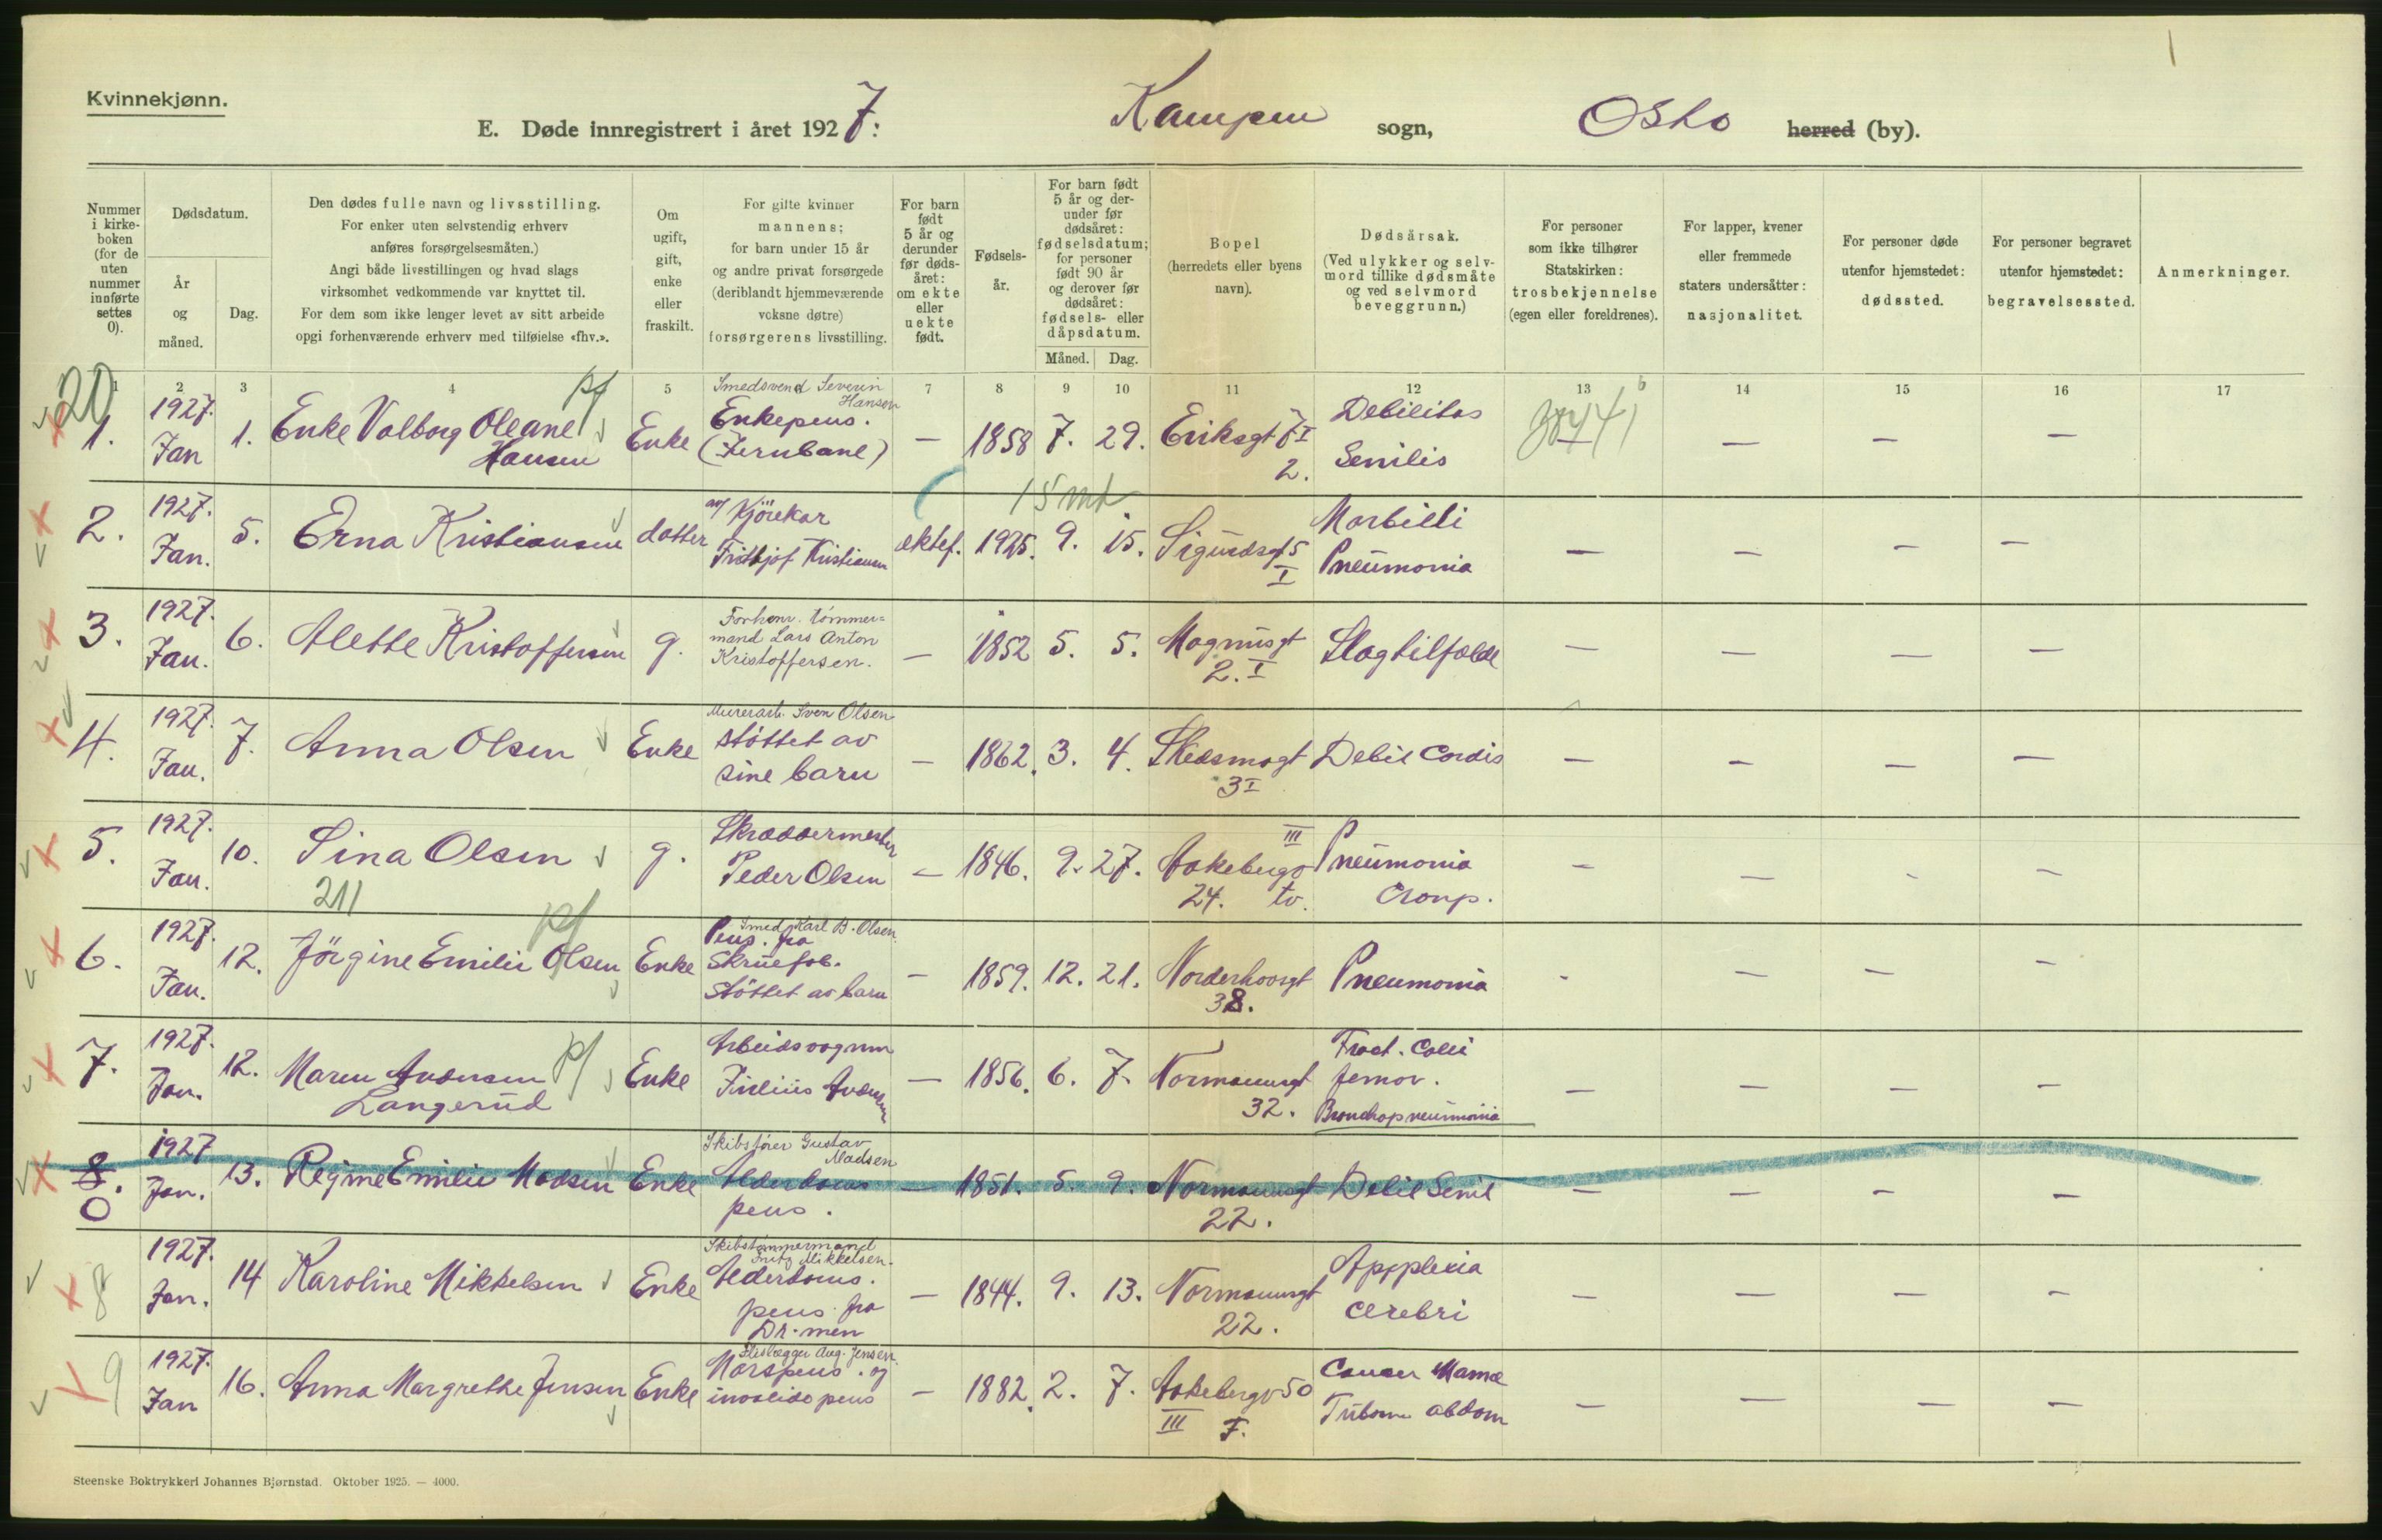 Kvinnekjønn.
E. Døde innregistrert i året 1927: Kampen sogn, Oslo herred (by).
Nummer i kirkeboken (for de uten nummer innførte settes 0).
Dødsdatum.
År og måned.
Dag.
Den dødes fulle navn og livsstilling.
For enker uten selvstendig erhverv
anføres forsørgelsesmåten.)
Angi både livsstillingen og hvad slags
virksomhet vedkommende var knyttet til.
For dem som ikke lenger levet av sitt arbeide
opgi forhenværende erhverv med tilføielse «fhv.».
Om ugift, gift, enke eller fraskilt.
For gifte kvinner
mannens;
for barn under 15 år
og andre privat forsørgede
(deriblandt hjemmeværende
voksne døtre)
forsørgerens livsstilling.
For barn født 5 år og derunder før dødsåret: om ekte eller uekte født.
Fødselsår.
For barn født 5 år og derunder før dødsåret: fødselsdatum; for personer født 90 år og derover før dødsåret: fødsels- eller dåpsdatum.
Måned. Dag.
Bopel
(herredets eller byens
navn).
Dødsårsak.
(Ved ulykker og selvmord tillike dødsmåte og ved selvmord beveggrunn.)
For personer
som ikke tilhører
Statskirken:
trosbekjennelse
(egen eller foreldrenes).
For lapper, kvener
eller fremmede
staters undersåtter:
nasjonalitet.
For personer døde
utenfor hjemstedet:
dødssted.
For personer begravet
utenfor hjemstedet:
begravelsessted.
Anmerkninger.
1 2 3 4 5 7 8 9 10 11 12 13 14 15 16 17
20
1. 1927. Jan 1. Enke Valborg Oleane Hansen Enke Smedsvend Severin Hansen Enkepens. (Jernbane) — 1858 7. 29. Eriksgt 7 I 2. Debilitas Senilis — — — —
15 mt
2. 1927. Jan. 5. Erna Kristiansen datter av Kjörekar Fridtjof Kristiansen ektef. 1925. 9. 15. Sigurdsgt 5 I Morbilli Pneumonia — — — —
3. 1927. Jan. 6. Alette Kristoffersen g. Forhenv. tömmermand Lars Anton Kristoffersen. — 1852 5. 5. Magnusgt 2. I Slagtilfælde — — — —
4. 1927. Jan. 7. Anna Olsen Enke Murerarb. Sven Olsen støttet av sine barn — 1862. 3. 4. Skedsmogt 3 I Debil Cordis — — — —
5. 1927. Jan. 10. Sina Olsen g. Skræddermester Peder Olsen — 1846. 9. 27. Aakebergv 24. III tv. Pneumonia Croup. — — - —
211
6. 1927. Jan. 12. Jörgine Emilie Olsen pf Enke Smed Karl B. Olsen. Pens. fra Skruefab. støttet av barn — 1859. 12. 21. Norderhovsgt 38. Pneumonia - — — —
7. 1927. Jan. 12. Maren Andersen Langerud pf Enke Arbeidsvognm Julius Andersen — 1856. 6. 7. Normannsgt 32. Fract. Colli femor. Bronchopneumonia — — — —
8. 0 1927 Jan. 13. Regine Emilie Madsen Enke Skibsfører Gustav Madsen Alderdoms pens. — 1851. 5. 9. Normannsgt 22. Debil Senil — — — —
8 1927. Jan. 14 Karoline Mikkelsen Enke Skibstømmermand Fritz Mikkelsen. Alderdoms. pens. fra Dr.men — 1844. 9. 13. Normannsgt 22. Apoplexia cerebri — — — —
9 1927. Jan 16. Anna Margrethe Jensen Enke Aug. Jensen. Morspens. og invalidepens — 1882. 2. 7. Aakebergv 50 III F. Cancer Mamæ abdom — — — —
Steenske Boktrykkeri Johannes Bjørnstad. Oktober 1925. — 4000.